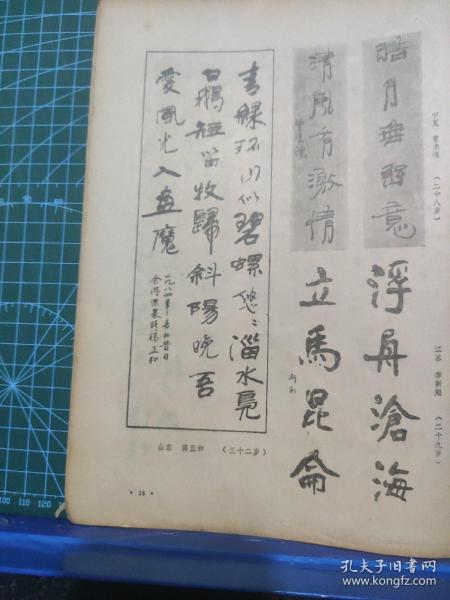 皓月無留意
清风有激情
曾来德
宁夏 曾来德 (二十八岁)
浮舟滄海
立馬昆侖
江苏 李新翔 (二十九岁)
青緑环山似碧螺悠悠淄水鳧
白鵝短笛牧歸斜陽晚吾
愛風光入畫魔
一九八四年
山东 蒋正和 (三十二岁)
· 18 ·
孔夫子旧书网
www.kongfz.com